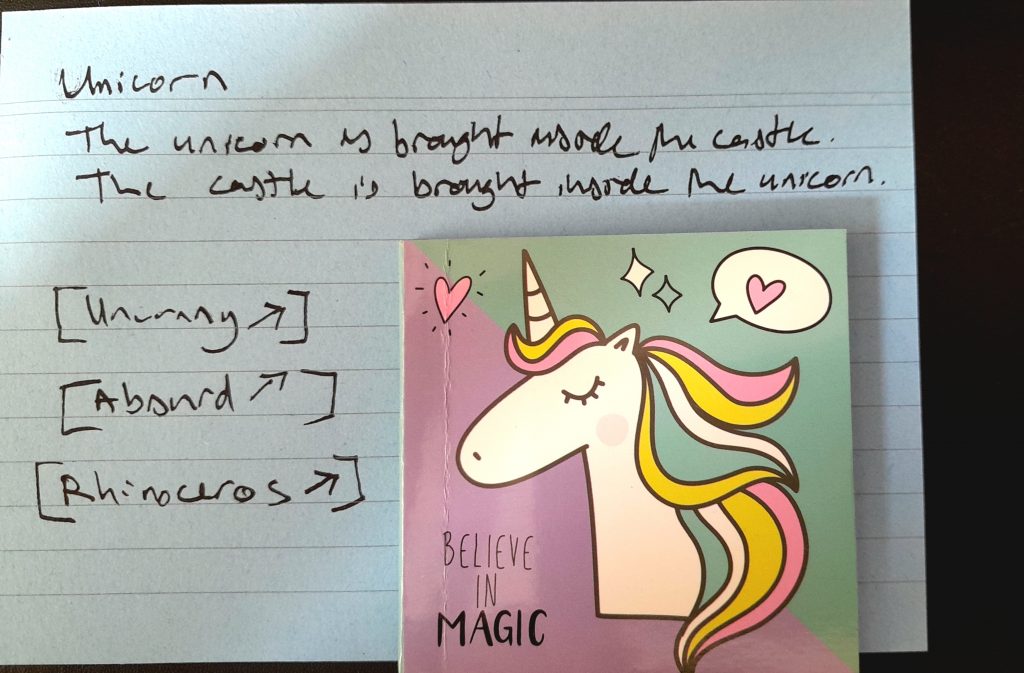 Unicorn
The unicorn is brought inside the castle.
The castle is brought inside the unicorn.
[Uncanny ↗]
[Absurd ↗]
[Rhinoceros ↗]
BELIEVE
IN
MAGIC